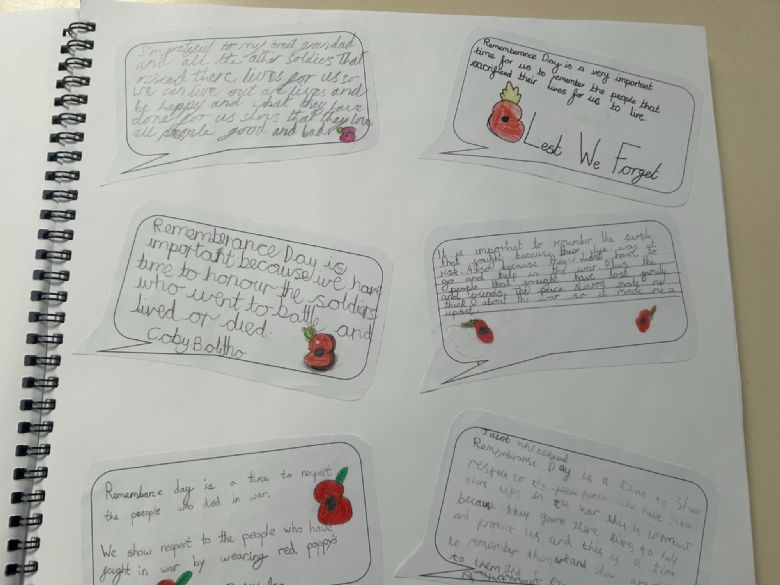 I'm grateful to my great grandad
and all the other soldiers that
risked there lives for us so
we can live out are lives and
be happy and what they have
done for us shows that they love
all people good and bad
Rememberance Day is a very important
time for us to remember the people that
sacrificed their lives for us to live.
Lest We Forget
Rememberance Day is
important because we have
time to honour the soldiers
who went to battle and
lived or died.
Coby Bolitho
It is important to remember the people
that fought because their life was at
risk. Also because they didn't have to
go and help in the war. Plus the
people that fought have lost family
and friends. The peace made me
think about the war so it made me a
upset.
Remembarce day is a time to respet
the people who died in war.
We show respet to the people who have
fought in war by wearing red poppy's
Jacob
Rememberanse Day is a time to show
respect to the people who have given
there lifes in the war this is important
because they gave there lives to help
and protect us and this is a time
to remember them and show
to them and